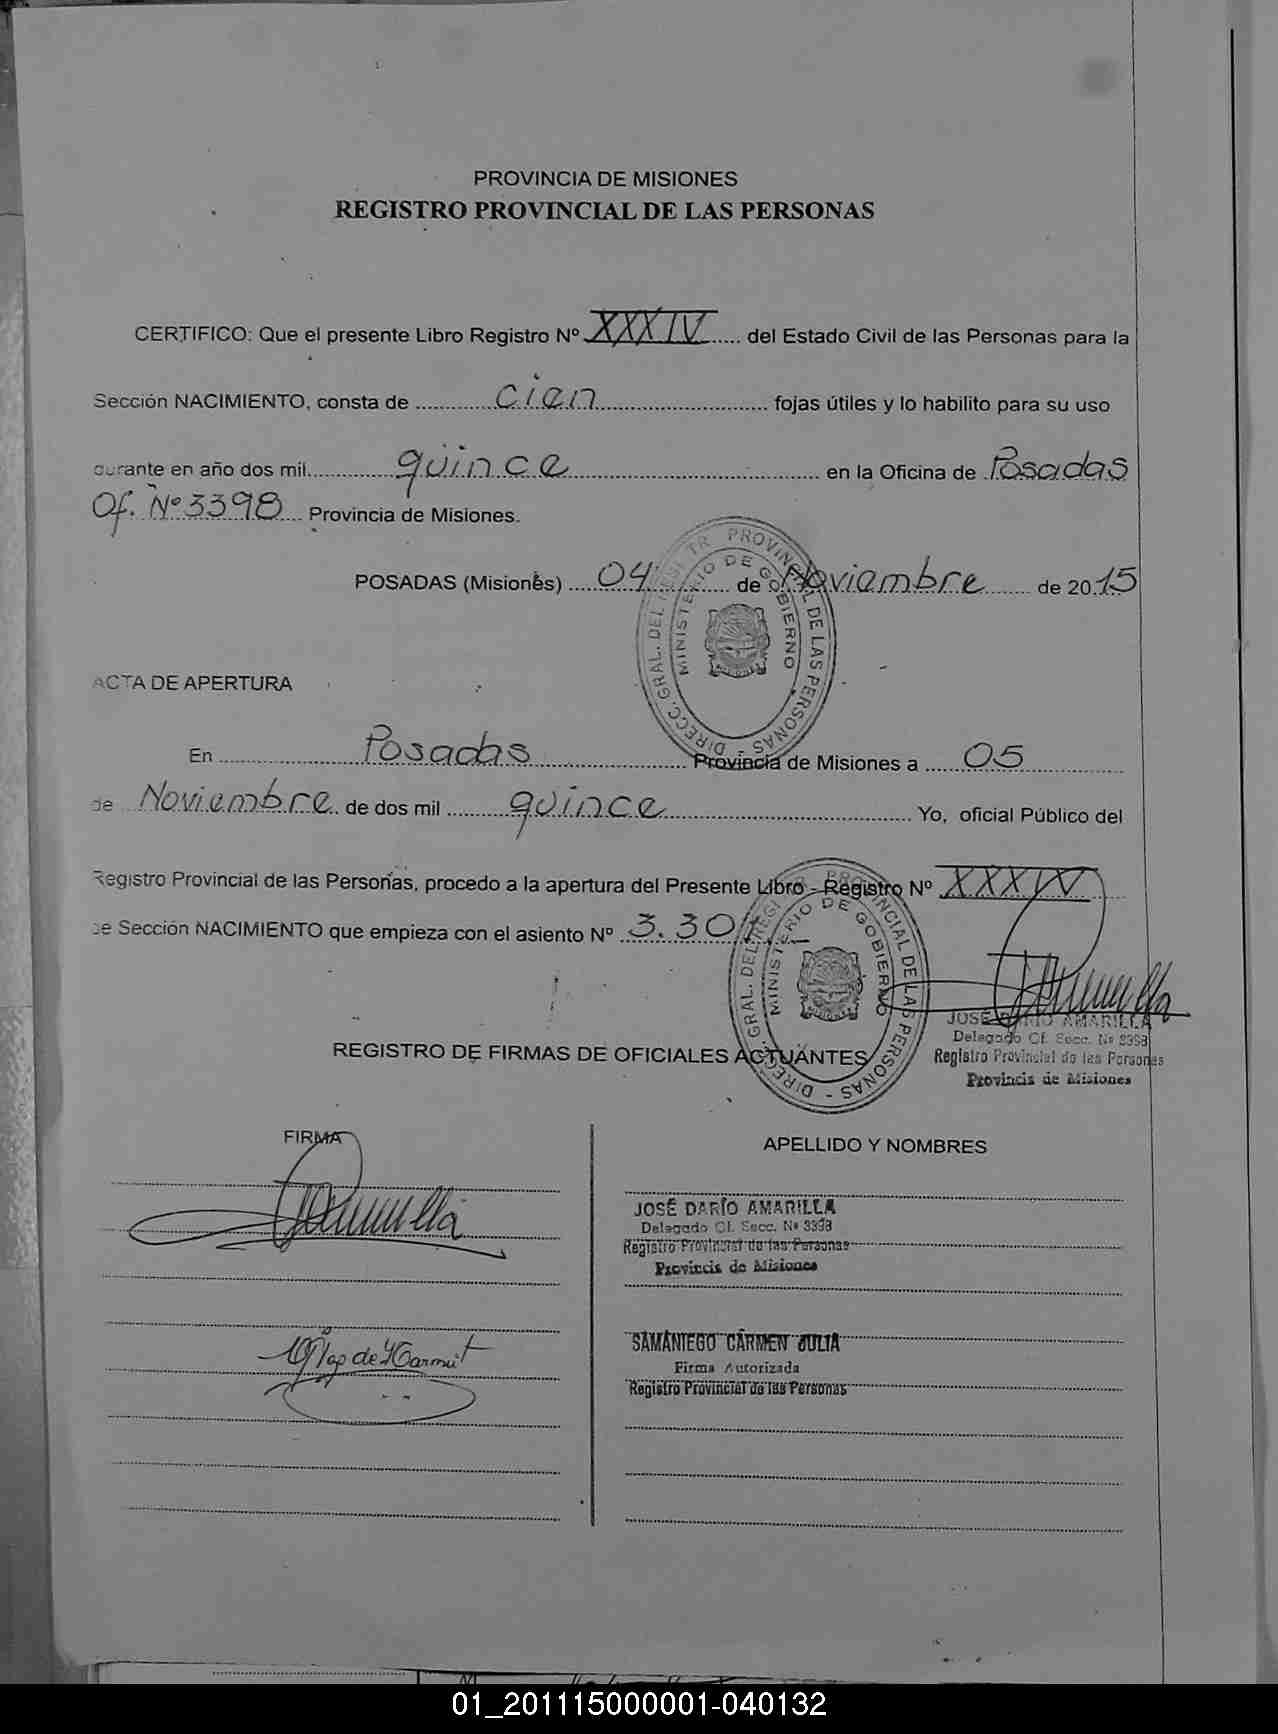 PROVINCIA DE MISIONES
REGISTRO PROVINCIAL DE LAS PERSONAS
CERTIFICO: Que el presente Libro Registro Nº XXXIV del Estado Civil de las Personas para la
Sección NACIMIENTO, consta de cien fojas útiles y lo habilito para su uso
durante en año dos mil quince en la Oficina de Posadas
Of. Nº 3398 Provincia de Misiones.
POSADAS (Misiones) 04 de Noviembre de 2015
DIRECC. GRAL. DEL REGISTR. PROVINCIAL DE LAS PERSONAS
MINISTERIO DE GOBIERNO
ACTA DE APERTURA
En Posadas Provincia de Misiones a 05
de Noviembre de dos mil quince Yo, oficial Público del
Registro Provincial de las Personas, procedo a la apertura del Presente Libro - Registro Nº XXXIV
de Sección NACIMIENTO que empieza con el asiento Nº 3.301
DIRECC. GRAL. DEL REGISTR. PROVINCIAL DE LAS PERSONAS
MINISTERIO DE GOBIERNO
JOSÉ DARÍO AMARILLA
Delegado Of. Secc. Nº 3398
Registro Provincial de las Personas
Provincia de Misiones
REGISTRO DE FIRMAS DE OFICIALES ACTUANTES
FIRMA
APELLIDO Y NOMBRES
JOSÉ DARÍO AMARILLA
Delegado Of. Secc. Nº 3398
Registro Provincial de las Personas
Provincia de Misiones
SAMANIEGO CARMEN JULIA
Firma Autorizada
Registro Provincial de las Personas
01_201115000001-040132